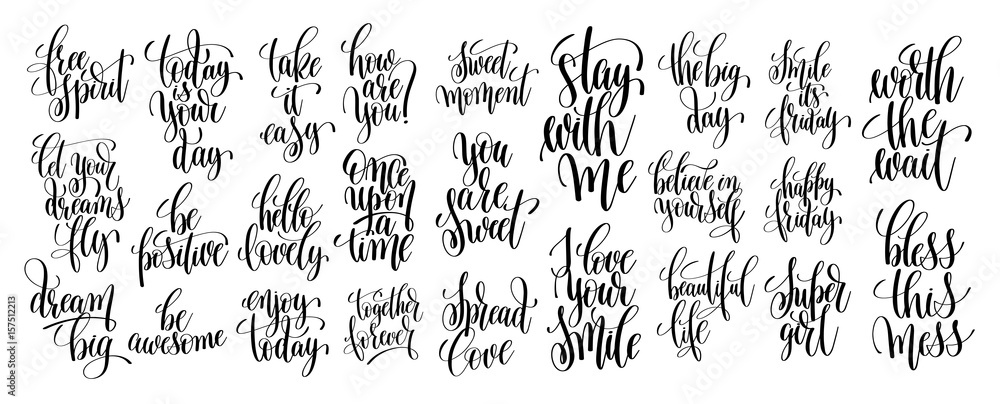 free
spirit
today
is
your
day
take
it
easy
how
are
you?
sweet
moment
stay
with
me
the big
day
smile
it's
friday
worth
the
wait
let your
dreams
fly
be
positive
hello
lovely
once
upon
a
time
you
are
sweet
believe in
yourself
happy
friday
bless
this
mess
dream
big
be
awesome
enjoy
today
together
forever
spread
love
I love
your
smile
beautiful
life
super
girl
Adobe Stock | #157512213